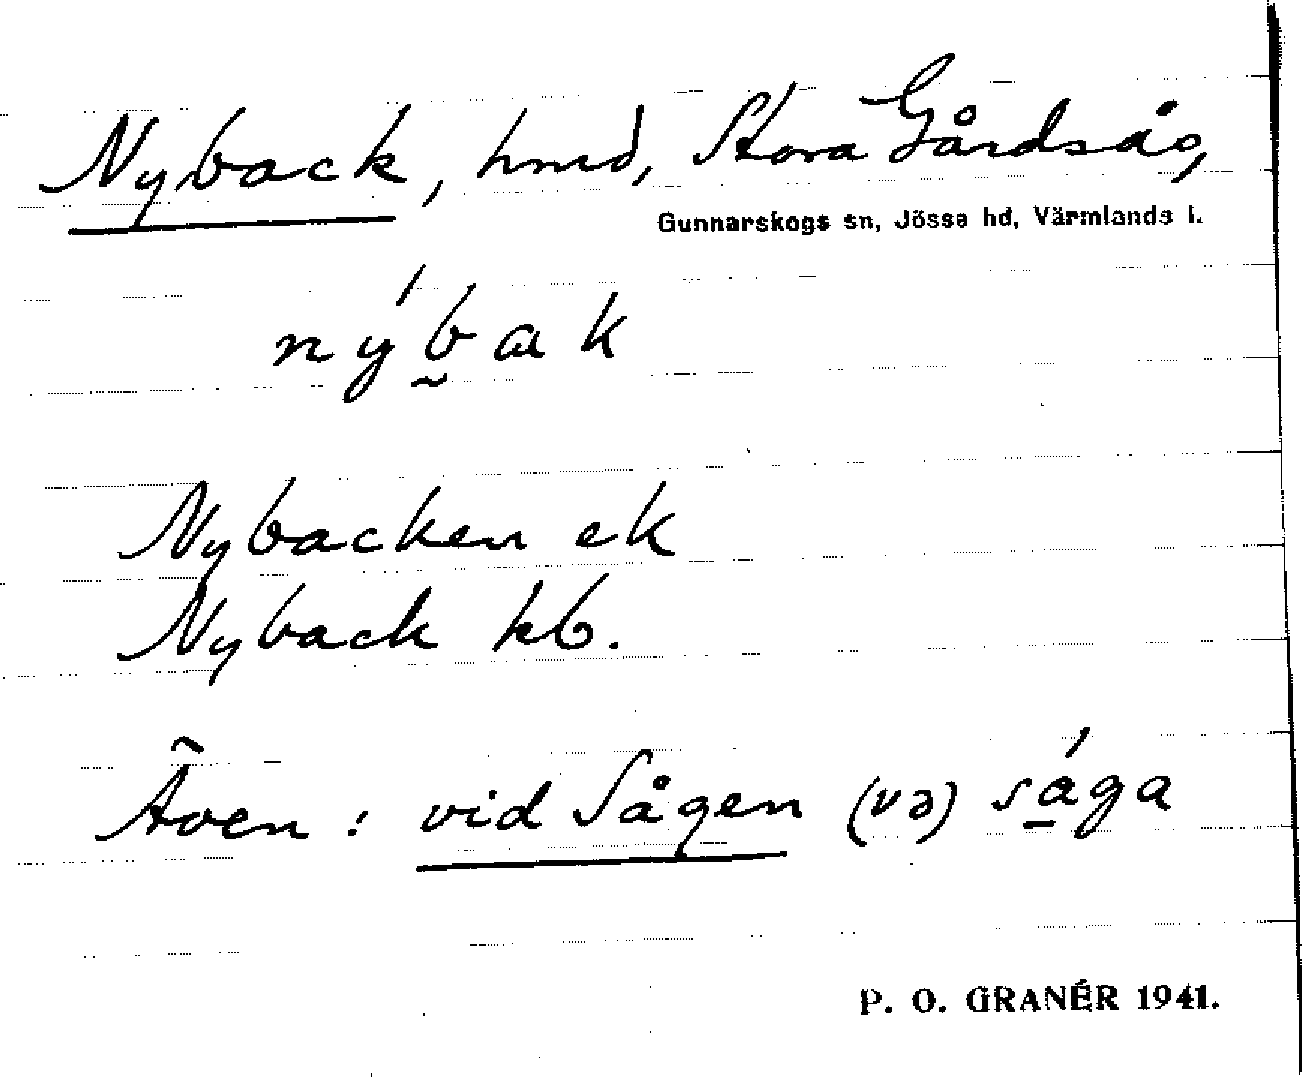 Nyback, hmd, Stora Gårdsås,
Gunnarskogs sn, Jösse hd, Värmlands l.
nýbak
Nybacken ek
Nyback kb.
Även: vid Sågen (və) sága
P. O. GRANÉR 1941.